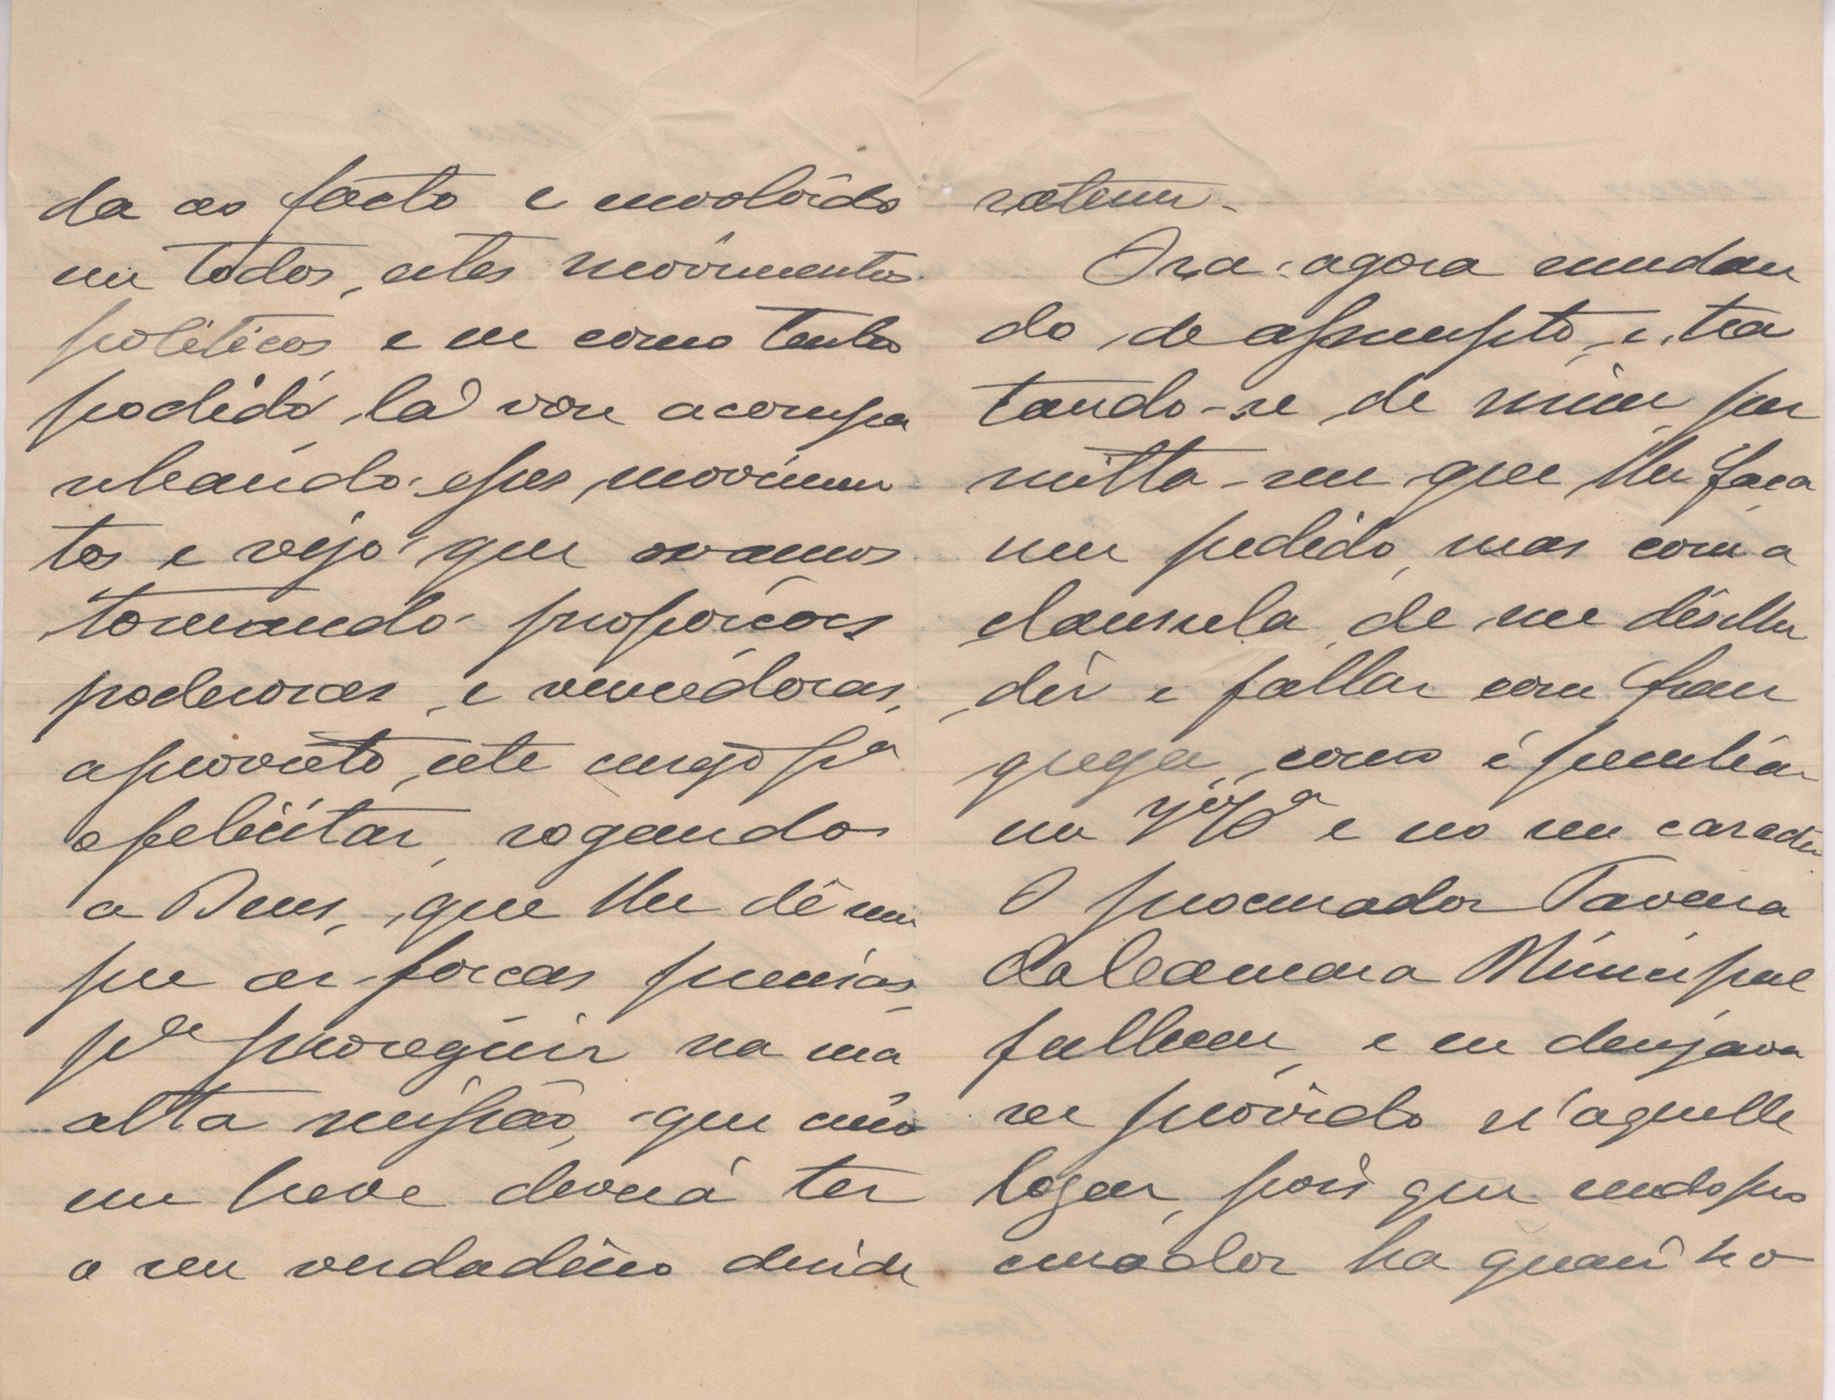 da ao facto e envolvido
em todos, estes movimentos
politicos, e eu como tenho
podido, la vou acompa
nhando esses movimen
tos e vejo que vamos
tomando proporicões
poderosas, e vencedoras,
aproveito, este ensejo pª
o felicitar, rogando
a Deus, que lhe dê sem
pre as forcas precisas
pª proseguir na sua
alta missão, que
em breve deverá ter
o seu verdadeiro deside
ratum.
Ora agora mudan
do de assumpto, e tra
tando-se de mim per
mitta-me que lhe faca
um pedido, mas com a
clausula, de me descul
dir e fallar com fran
queza, como é peculiar
na Vª e no seu caracter
O procurador Taveira
da Camara Municipal
falleceu, e eu desejava
ser provido n'aquelle
logar, pois que sendo pro
curador ha quasi no